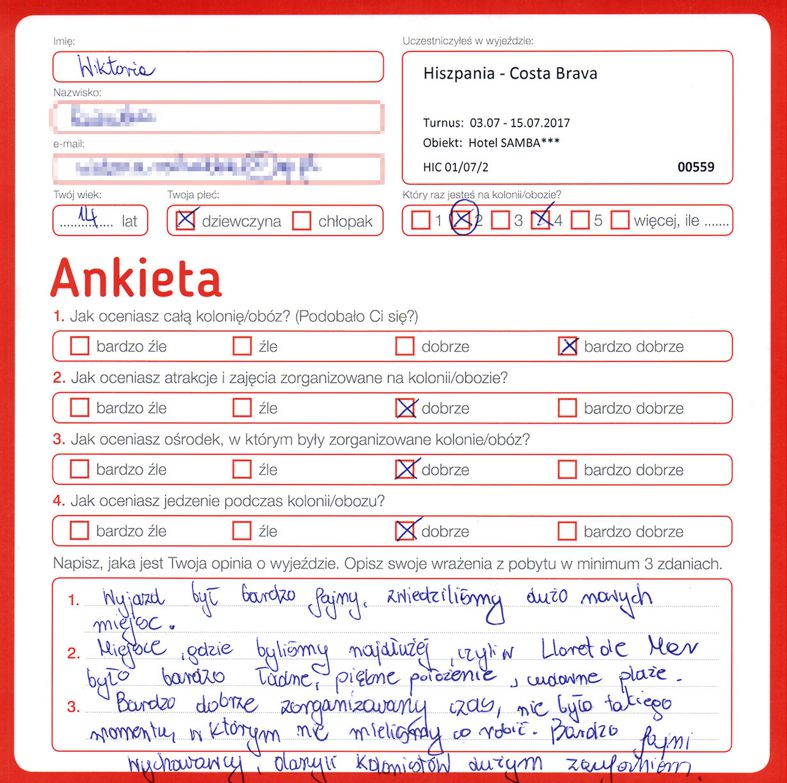 Imię:
Wiktoria
Nazwisko:
e-mail:
Twój wiek:
14 lat
Twoja płeć:
dziewczyna chłopak
Uczestniczyłeś w wyjeździe:
Hiszpania - Costa Brava
Turnus: 03.07 - 15.07.2017
Obiekt: Hotel SAMBA***
HIC 01/07/2 00559
Który raz jesteś na kolonii/obozie?
1 2 3 4 5 więcej, ile .......
Ankieta
1. Jak oceniasz całą kolonię/obóz? (Podobało Ci się?)
bardzo źle źle dobrze bardzo dobrze
2. Jak oceniasz atrakcje i zajęcia zorganizowane na kolonii/obozie?
bardzo źle źle dobrze bardzo dobrze
3. Jak oceniasz ośrodek, w którym były zorganizowane kolonie/obóz?
bardzo źle źle dobrze bardzo dobrze
4. Jak oceniasz jedzenie podczas kolonii/obozu?
bardzo źle źle dobrze bardzo dobrze
Napisz, jaka jest Twoja opinia o wyjeździe. Opisz swoje wrażenia z pobytu w minimum 3 zdaniach.
1. Wyjazd był bardzo fajny, zwiedziliśmy dużo nowych
miejsc.
2. Miejsce, gdzie byliśmy najdłużej, czyli w Lloret de Mar
było bardzo ładne, piękne położenie, cudowne plaże.
3. Bardzo dobrze zorganizowany czas, nie było takiego
momentu, w którym nie mieliśmy co robić. Bardzo fajni
wychowawcy, darzyli kolonistów dużym zaufaniem.